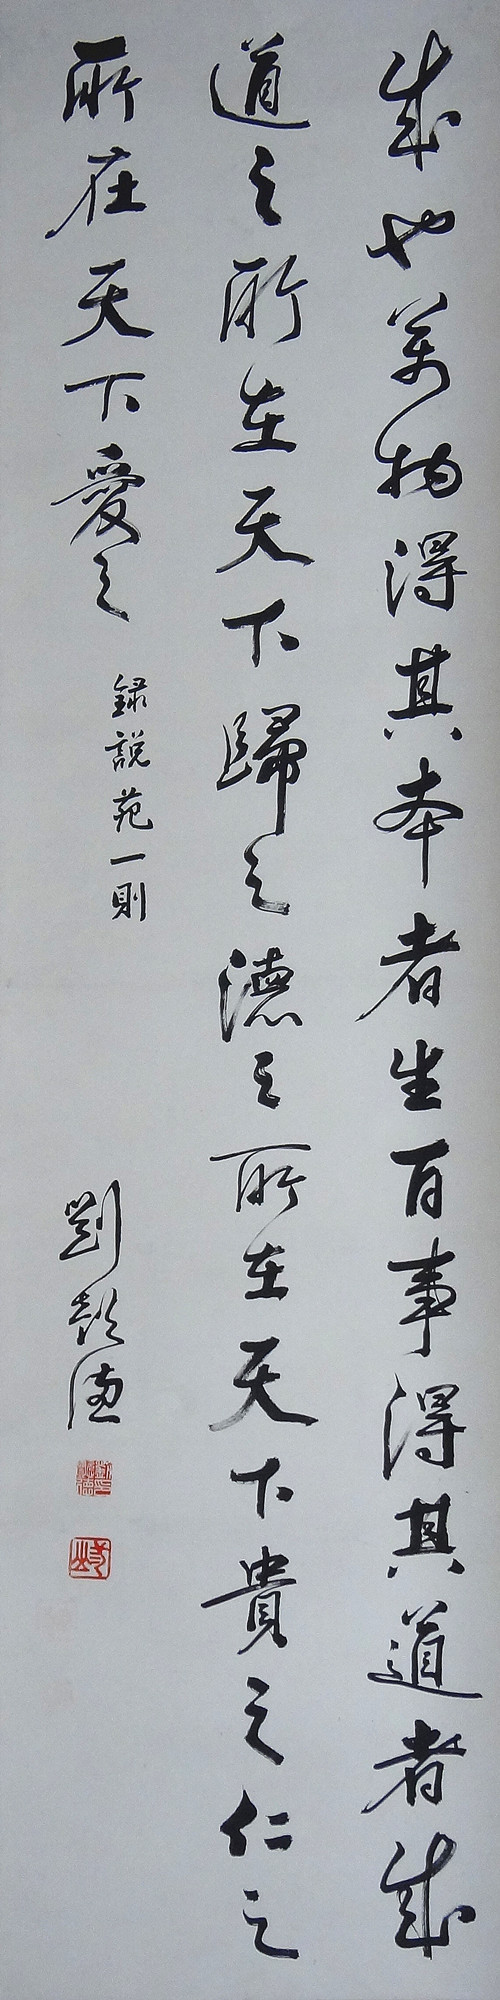 成也萬物得其本者生百事得其道者成
道之所在天下歸之德之所在天下貴之仁之
所在天下愛之
錄說苑一則
劉